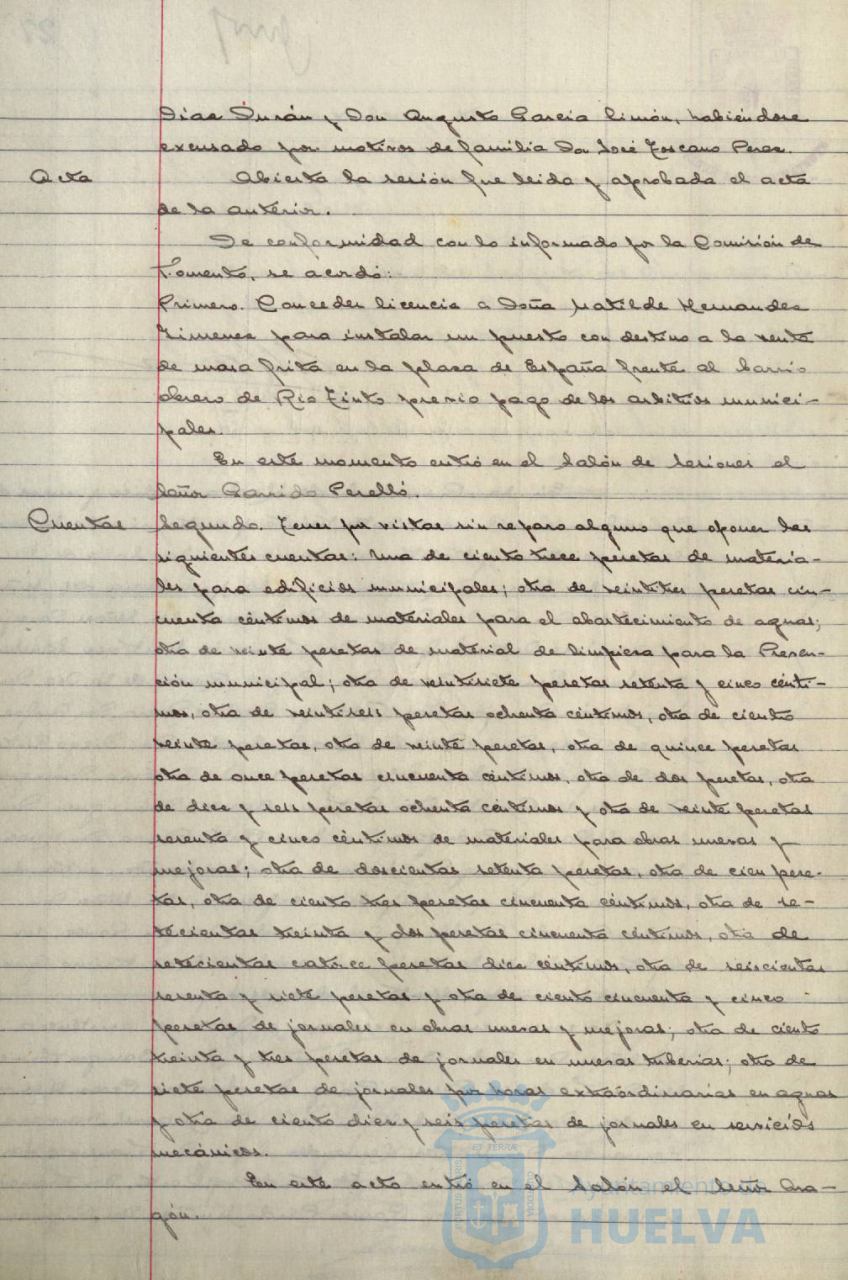 Díaz Durán y Don Augusto García Limón, habiéndose
excusado por motivos de familia Don José Toscano Perez.
Acta
Abierta la sesión fue leida y aprobada el acta
de la anterior.
De conformidad con lo informado por la Comisión de
Fomento, se acordó:
Primero. Conceder licencia a Doña Matilde Hernandez
Zimenez para instalar un puesto con destino a la venta
de masa frita en la plaza de España frente al barrio
obrero de Rio Tinto previo pago de los arbitrios munici-
pales.
En este momento entró en el Salón de Sesiones el
Señor Garrido Perelló.
Cuentas
Segundo. Tener por vistas sin reparo alguno que oponer las
siguientes cuentas: una de ciento trece pesetas de materia-
les para edificios municipales; otra de veintitres pesetas cin-
cuenta céntimos de materiales para el abastecimiento de aguas;
otra de veinte pesetas de material de limpieza para la Preven-
ción municipal; otra de veintisiete pesetas setenta y cinco cénti-
mos, otra de veintiseis pesetas ochenta céntimos, otra de ciento
veinte pesetas, otra de veinte pesetas, otra de quince pesetas
otra de once pesetas cincuenta céntimos, otra de dos pesetas, otra
de diez y seis pesetas ochenta céntimos y otra de veinte pesetas
sesenta y cinco céntimos de materiales para obras nuevas y
mejoras; otra de doscientas setenta pesetas, otra de cien pese-
tas, otra de ciento tres pesetas cincuenta céntimos, otra de se-
tecientas treinta y dos pesetas cincuenta céntimos, otra de
setecientas catorce pesetas diez céntimos, otra de seiscientas
sesenta y siete pesetas y otra de ciento cincuenta y cinco
pesetas de jornales en obras nuevas y mejoras; otra de ciento
treinta y tres pesetas de jornales en nuevas tuberias; otra de
siete pesetas de jornales por horas extraordinarias en aguas
y otra de ciento diez y seis pesetas de jornales en servicios
mecánicos.
En este acto entró en el Salón el Señor Ara-
gón.
Ayuntamiento
HUELVA